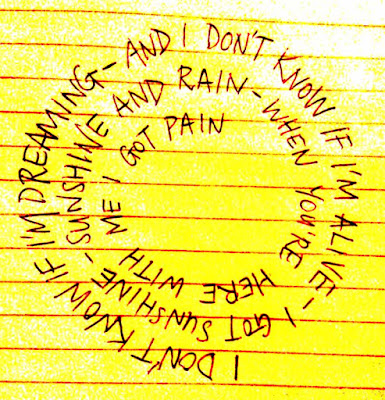 I DON'T KNOW IF I'M DREAMING - AND I DON'T KNOW IF I'M ALIVE - I GOT SUNSHINE - SUNSHINE AND RAIN - WHEN YOU'RE HERE WITH ME I GOT PAIN